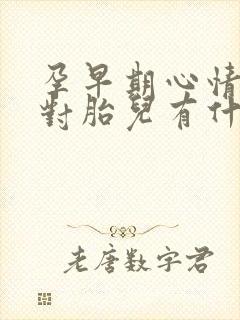 孕早期心情
對胎兒有什
老唐数字君